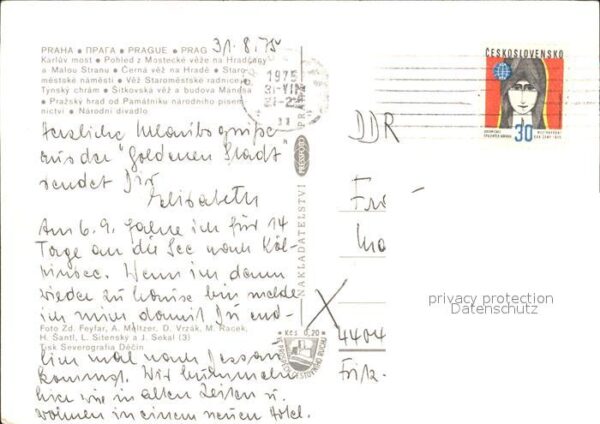 31.8.75
PRAHA • ПРАГА • PRAGUE • PRAG
Karlův most • Pohled z Mostecké věže na Hradčany
a Malou Stranu • Černá věž na Hradě • Staro-
městské náměstí • Věž Staroměstské radnice
Tynský chrám • Šítkovská věž a budova Mánesa
• Pražský hrad od Památníku národního písem-
nictví • Národní divadlo
1975
ČESKOSLOVENSKO
30
Herzliche Urlaubsgrüße
aus der "Goldenen Stadt
sendet Dir
Elisabeth
Am 6.9. fahre ich für 14
Tage an die See nach Köl-
pinsee. Wenn ich dann
wieder zu Hause bin melde
ich mich damit Du end-
Foto Zd. Feyfar, A. Meltzer, D. Vrzák, M. Racek,
H. Šantl, L. Sitenský a J. Sekal (3)
Tisk Severografia Děčín
lich mal nach Dessau
kommst. Wir bummeln
hier wie in alten Zeiten u.
wohnen in einem neuen Hotel.
NAKLADATELSTVÍ PRESSFOTO PRAHA
Kčs 0,20
DDR
Fr
4404
privacy protection
Datenschutz